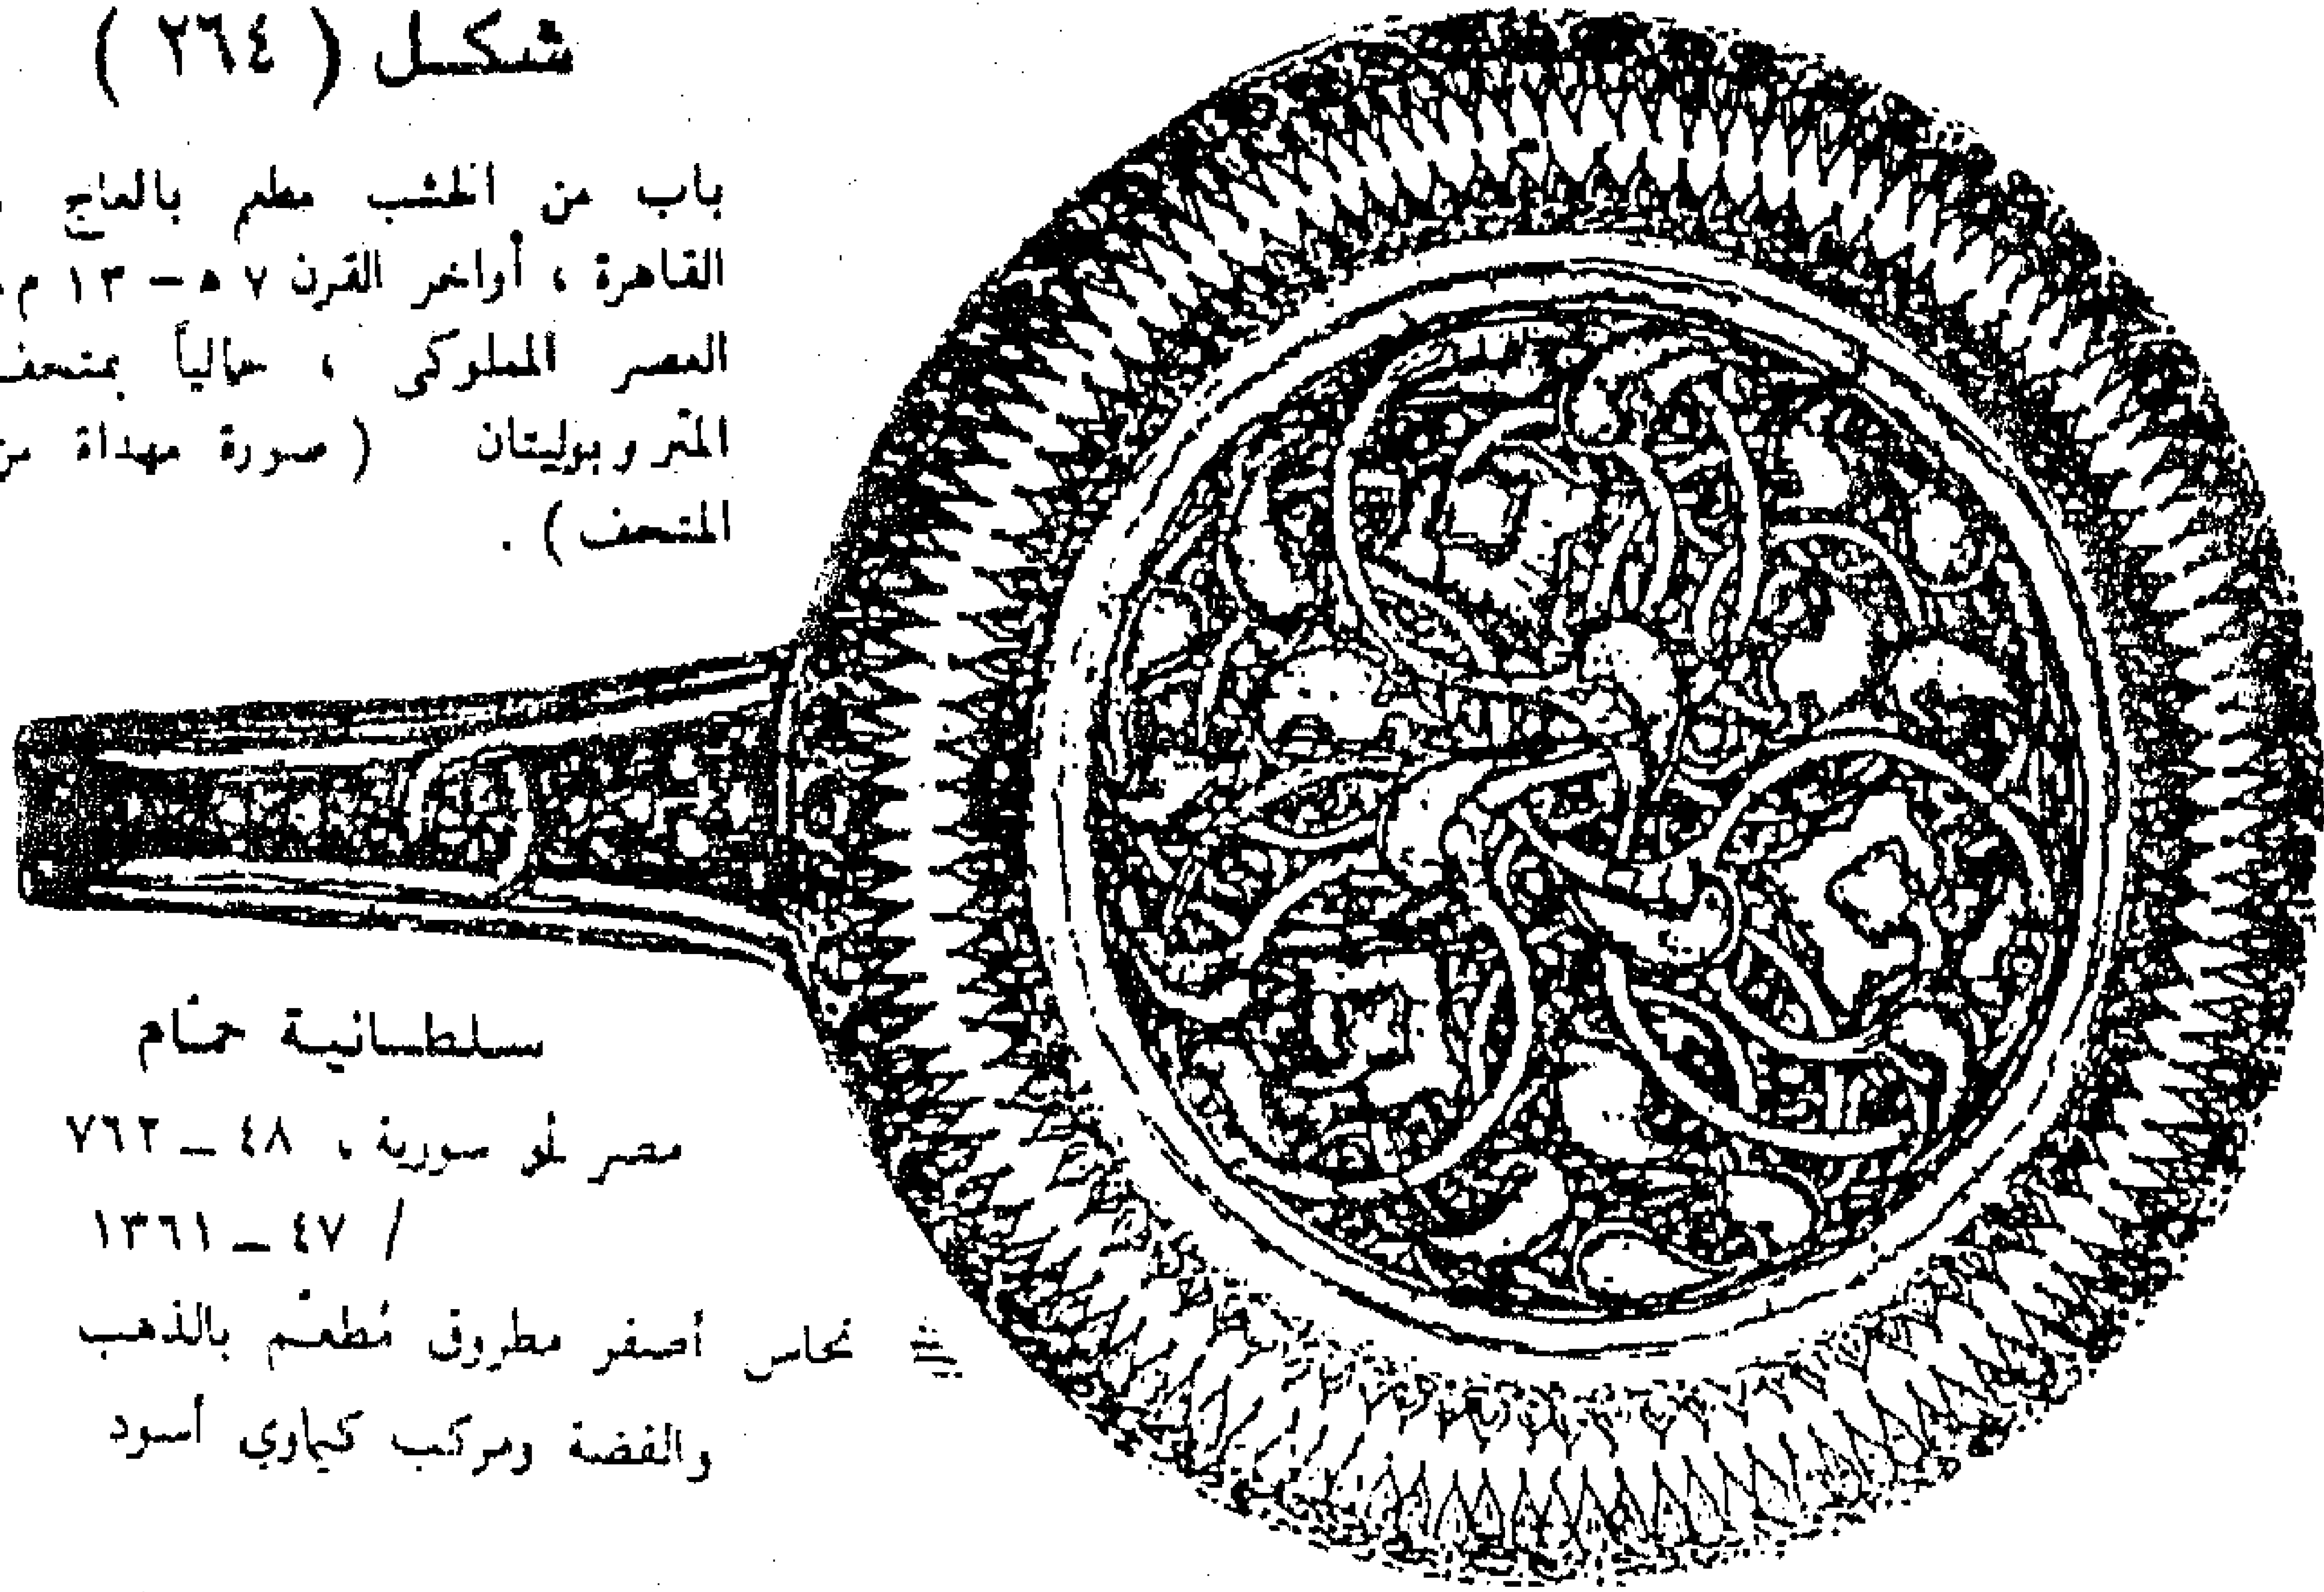 شكل ( ٢٦٤ )
باب من الخشب مطعم بالعاج .
القاهرة ، أواخر القرن ٧ ه – ١٣ م.
العصر المملوكى ، حالياً بمتحف
المتروبوليتان ( صورة مهداة من
المتحف ) .
سلطانية حمّام
مصر أو سورية ، ٤٨ – ٧٦٢
/ ٤٧ – ١٣٦١
نحاس أصفر مطروق مُطعّم بالذهب
والفضة ومركب كيماوي أسود